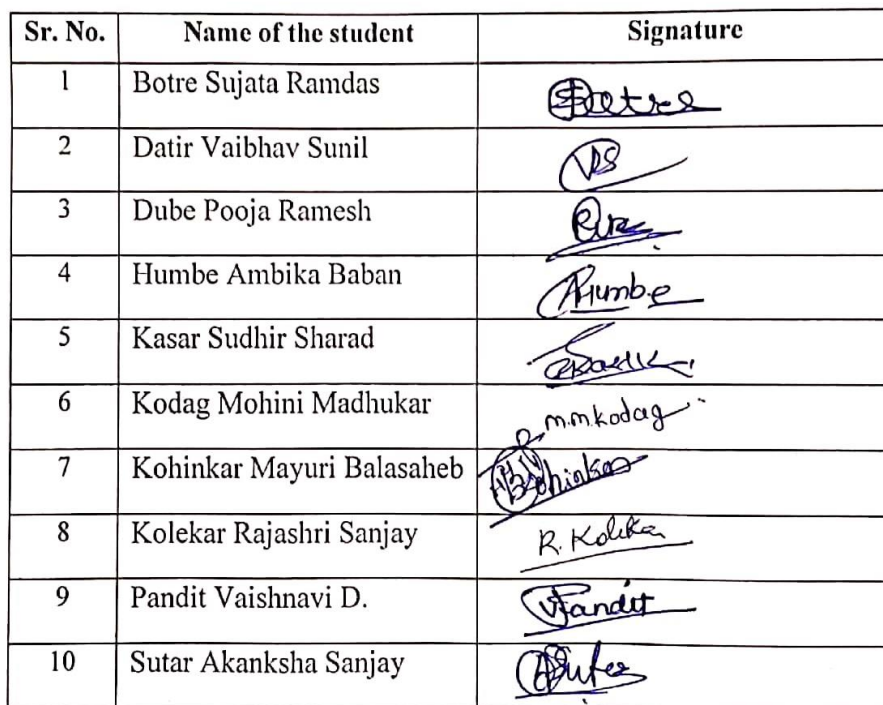 Sr. No. Name of the student Signature
1 Botre Sujata Ramdas
2 Datir Vaibhav Sunil VDS
3 Dube Pooja Ramesh
4 Humbe Ambika Baban AHumbe
5 Kasar Sudhir Sharad
6 Kodag Mohini Madhukar m.m.kodag
7 Kohinkar Mayuri Balasaheb
8 Kolekar Rajashri Sanjay R. Kolekar
9 Pandit Vaishnavi D. VPandit
10 Sutar Akanksha Sanjay